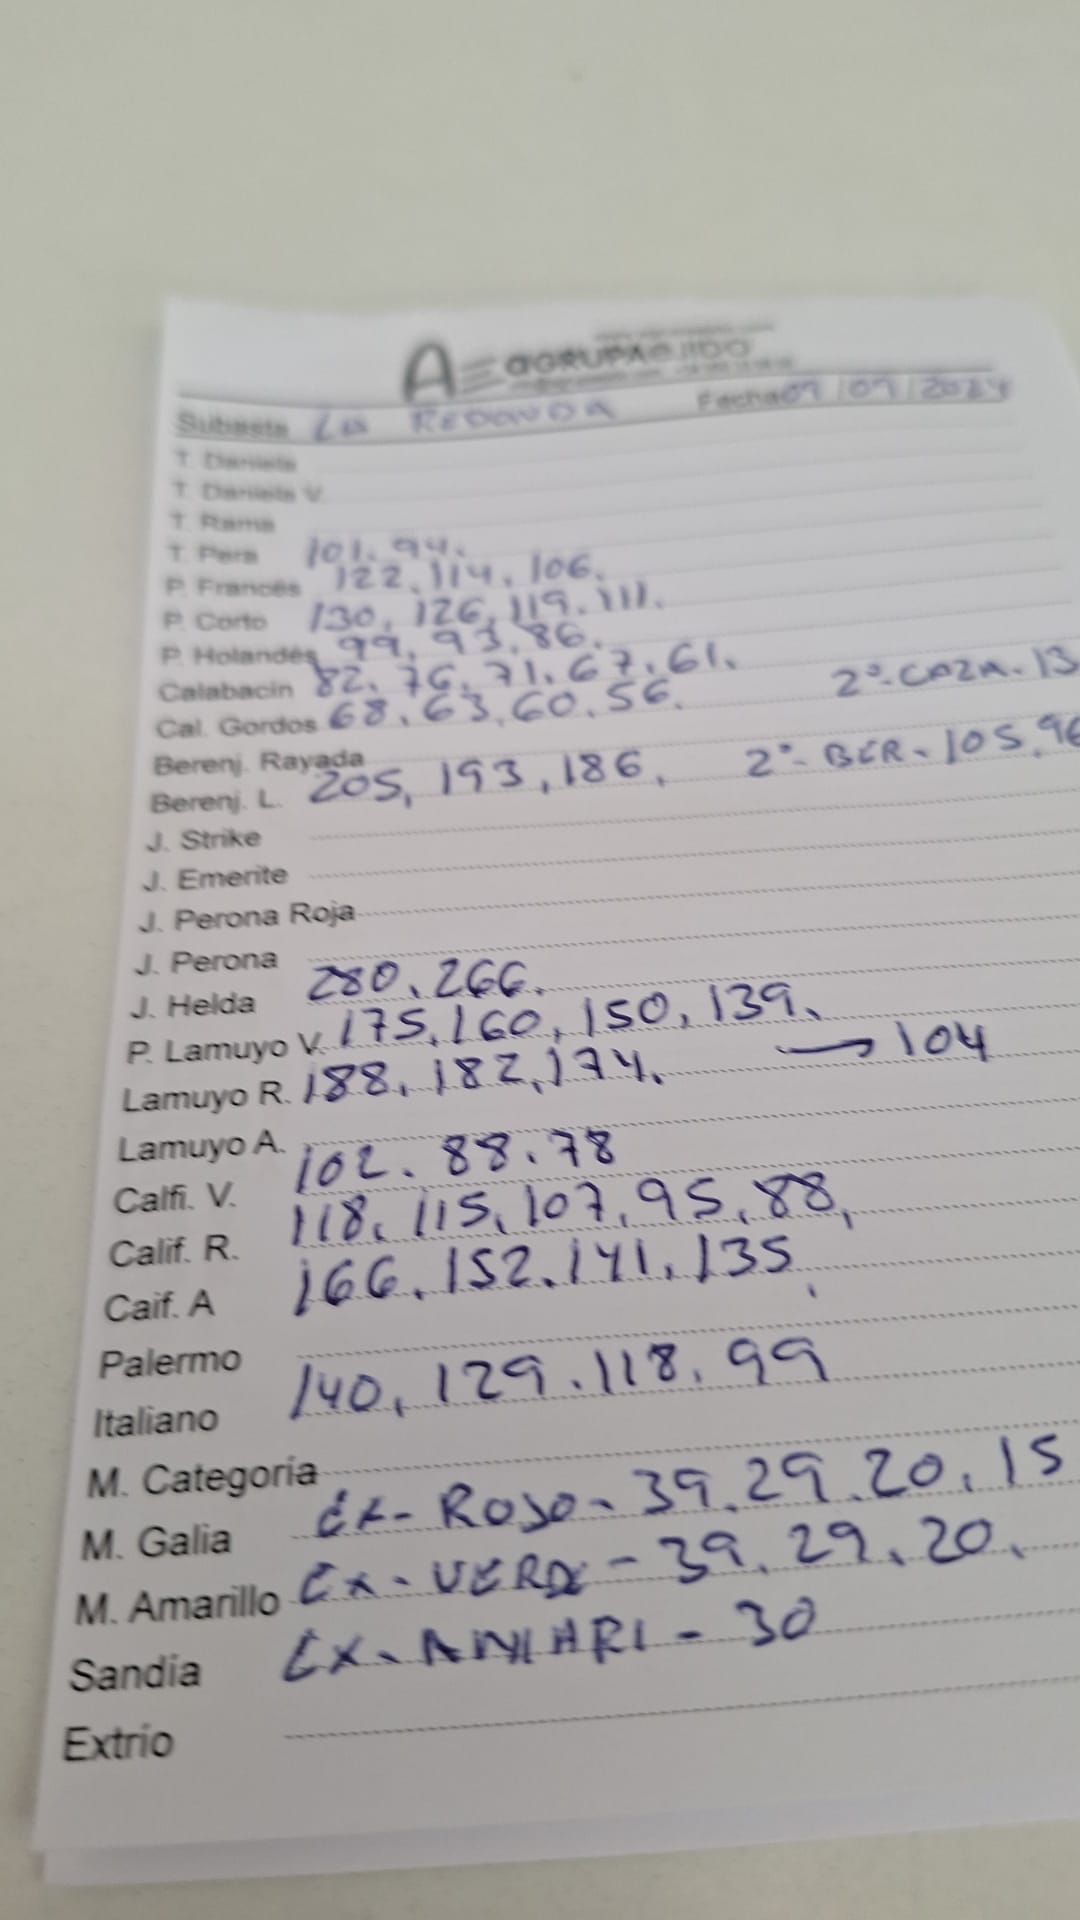 AGRUPAEJIDO
Subasta LA REDONDA Fecha 09/09/2024
T. Daniela
T. Daniela V.
T. Rama
T. Pera 101. 94.
P. Francés 122. 114. 106.
P. Corto 130, 126, 119. 111.
P. Holandés 99. 93. 86.
Calabacin 82. 76. 71. 67. 61.
Cal. Gordos 68. 63. 60. 56. 2º-CAZA. 13
Berenj. Rayada
Berenj. L. 205, 193, 186, 2º- BER- 105. 96
J. Strike
J. Emerite
J. Perona Roja
J. Perona
J. Helda 280. 266.
P. Lamuyo V. 175, 160, 150, 139.
Lamuyo R. 188, 182, 174. → 104
Lamuyo A.
Calfi. V. 102. 88. 78
Calif. R. 118, 115, 107, 95, 88,
Caif. A 166. 152. 141, 135
Palermo
Italiano 140, 129. 118. 99
M. Categoría
M. Galia EX- ROJO- 39. 29. 20. 15
M. Amarillo EX- VERDE - 39. 29. 20.
Sandía EX- AMARI - 30
Extrio